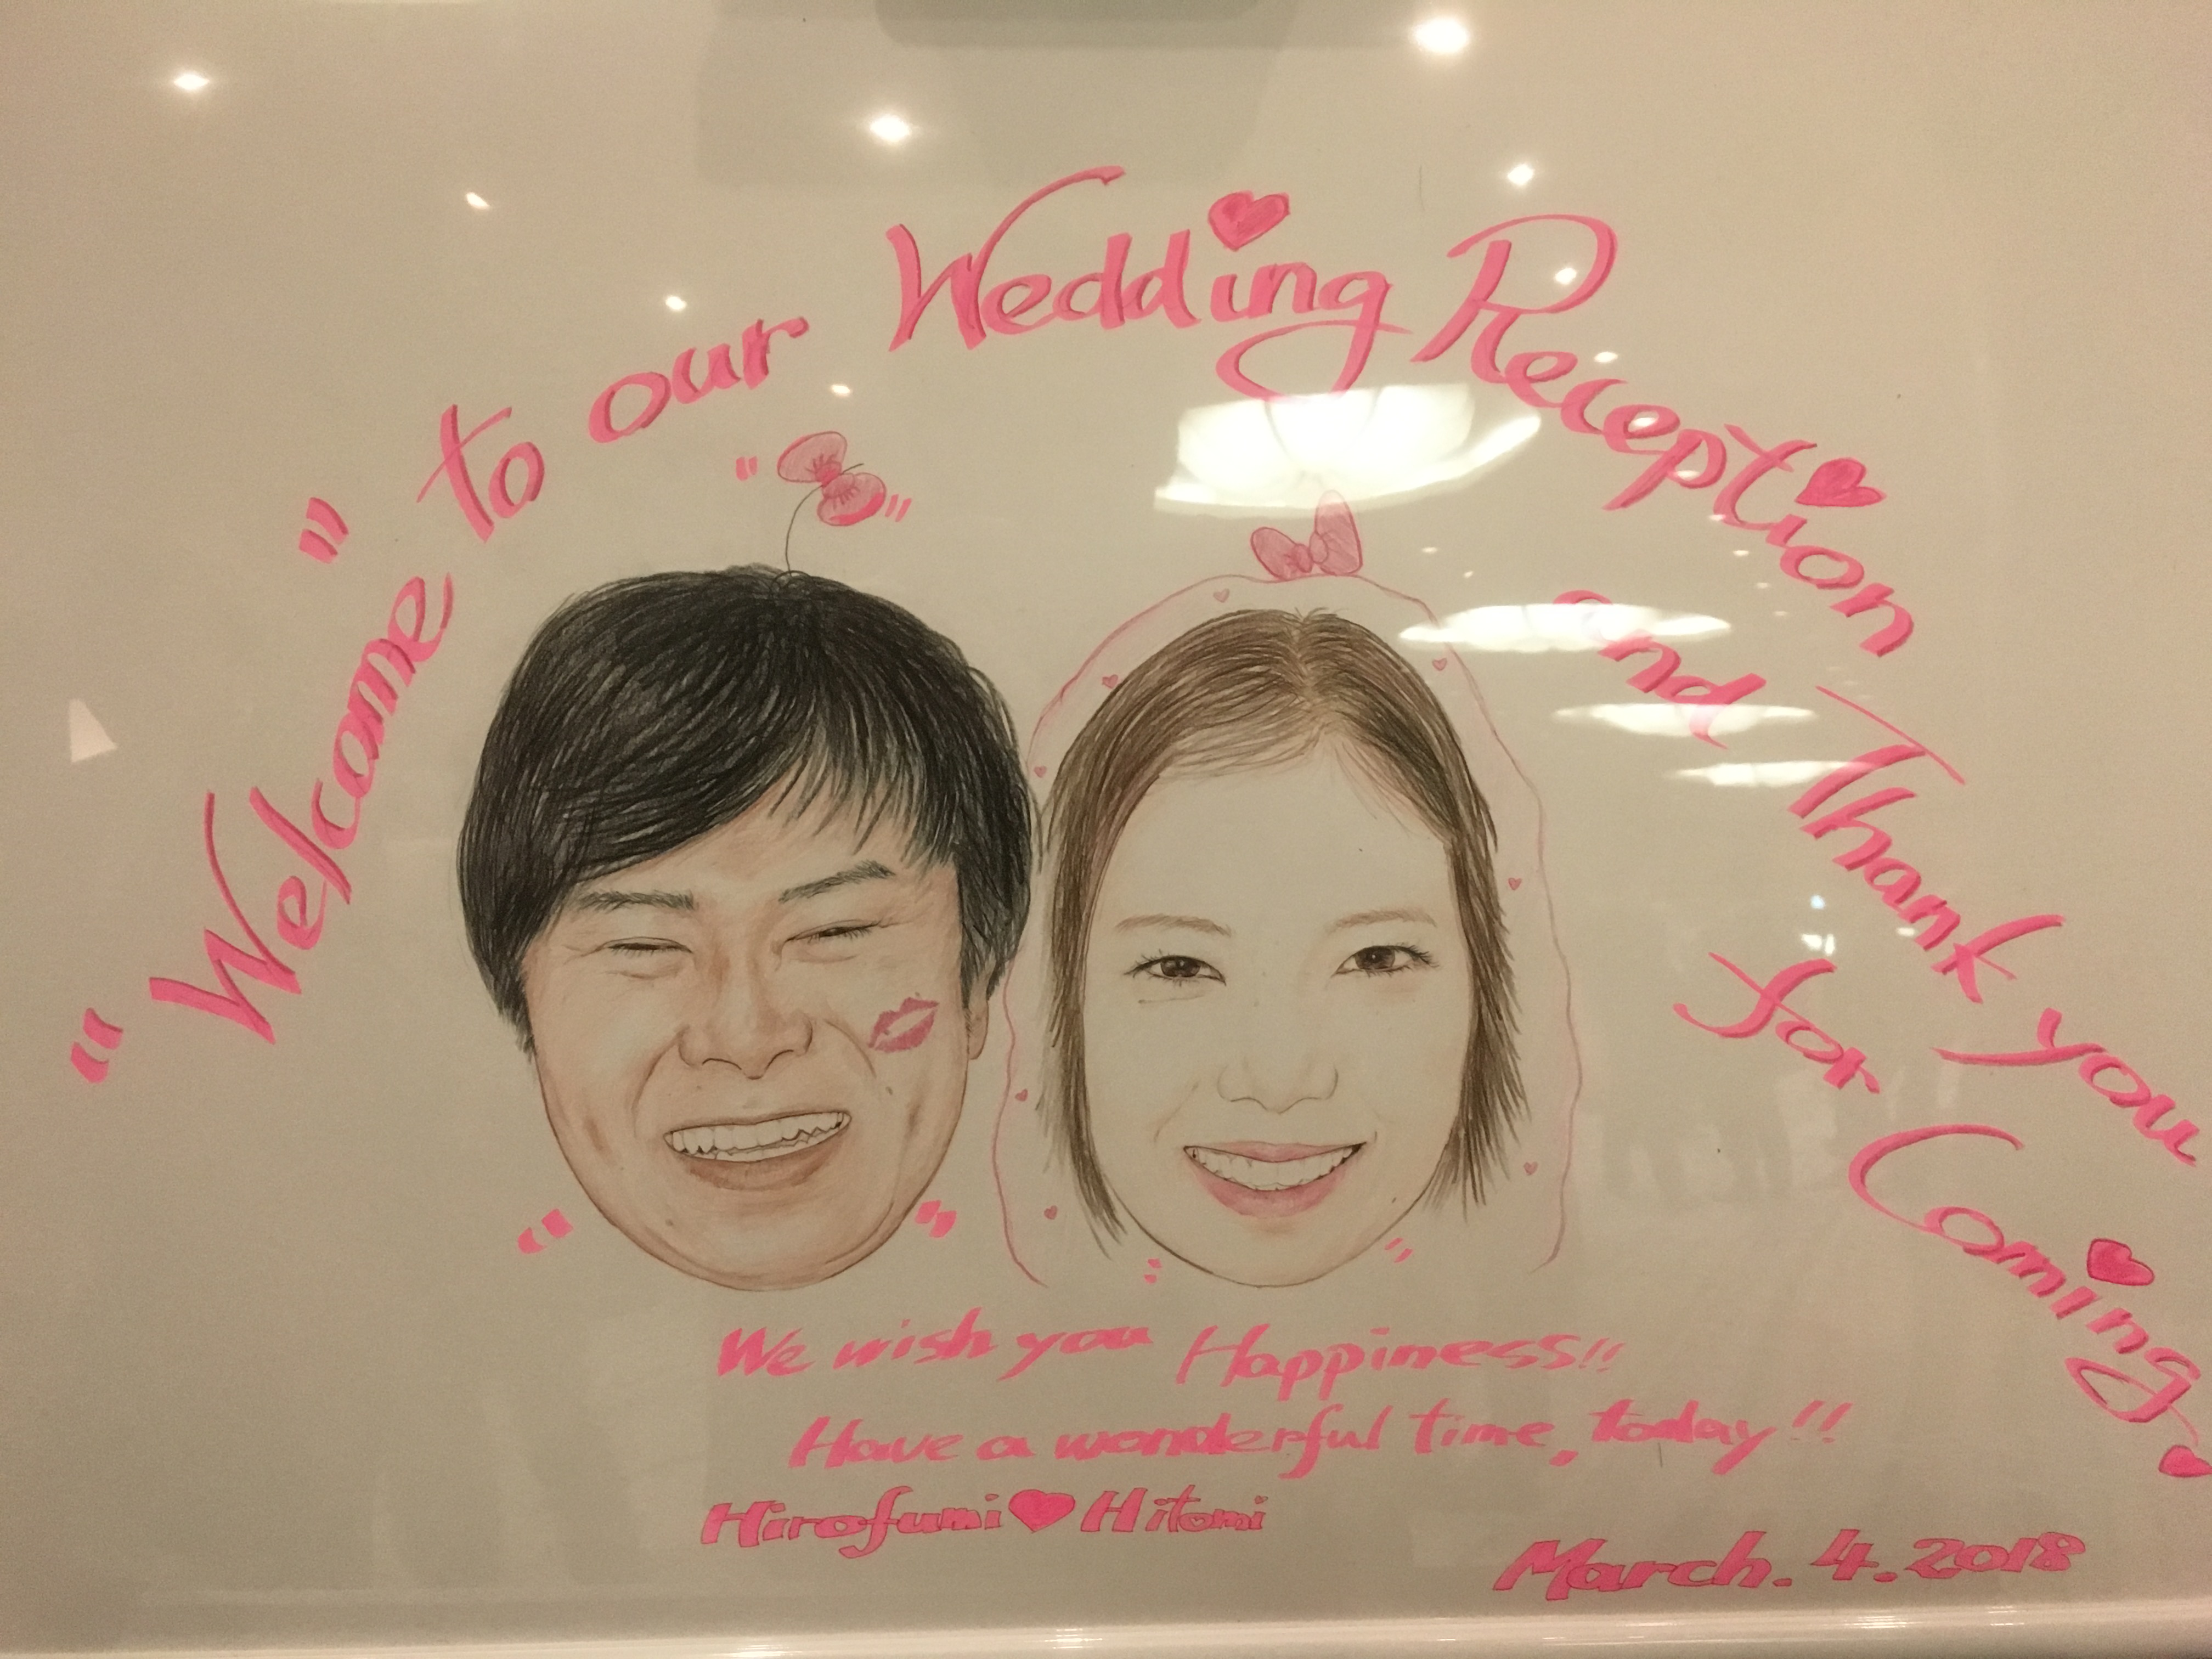 "Welcome" to our Wedding Reception
and Thank you
for Coming
We wish you Happiness!!
Have a wonderful time, today!!
Hirofumi♥Hitomi
March. 4. 2018